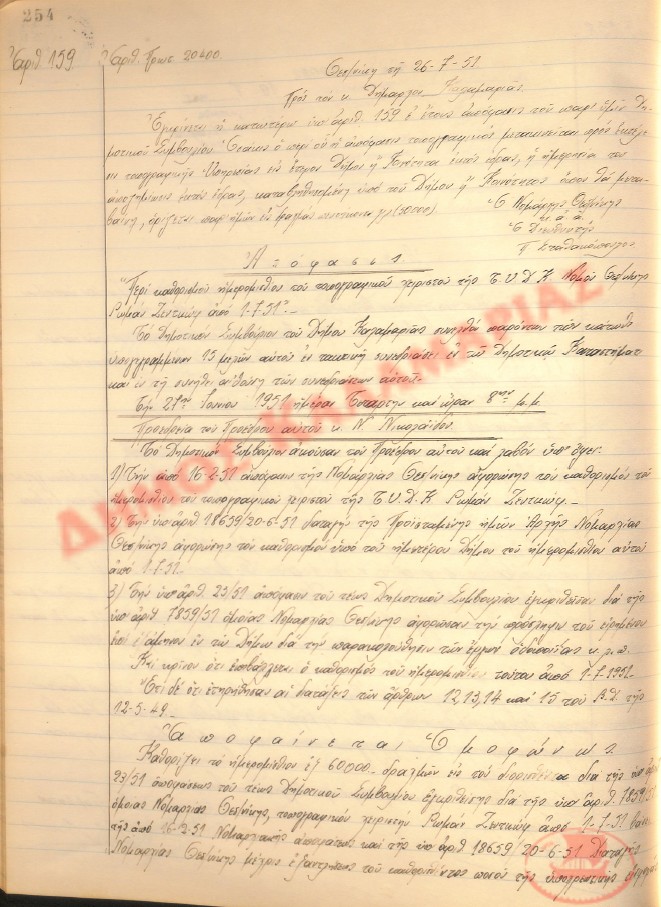 254
Ἀριθ. 159
Ἀριθ. Πρωτ. 20400.
Θεσ/νίκη τῇ 26-7-51
Πρὸς τὸν κ. Δήμαρχον Καλαμαριᾶς
Ἐγκρίνεται ἡ κατωτέρω ὑπ' ἀριθ. 159 ἐ. ἔτους ἀπόφασις τοῦ παρ' ὑμῖν Δη-
μοτικοῦ Συμβουλίου
τοπογραφικῆς Ὑπηρεσίας εἰς ἕτερον Δῆμον ἢ Κοινότητα ἐκτὸς ἕδρας, ἡ
ἀποζημίωσις ἐκτὸς ἕδρας, καταβληθησομένη ὑπὸ τοῦ Δήμου ἢ Κοινότητος ὅπου θὰ μετα-
βαίνῃ, ὁρίζεται παρ' ἡμῶν εἰς δραχμὰς (50000).
Ὁ Νομάρχης Θεσ/νίκης
κ.α.α.
Ὁ Διευθυντὴς
Ἀπόφασις
"Περὶ καθορισμοῦ ἡμερομισθίου τοῦ τοπογραφικοῦ χειριστοῦ τῆς Τ.Υ.Δ.Κ. Νομοῦ Θεσ/νίκης
Ρωμᾶν Ζεντκώφ ἀπὸ 1-7-51".-
Τὸ Δημοτικὸν Συμβούλιον τοῦ Δήμου Καλαμαριᾶς συνελθὸν παρόντων τῶν κάτωθι
ὑπογεγραμμένων 15 μελῶν αὐτοῦ ἐν τακτικῇ συνεδριάσει ἐν τῷ Δημοτικῷ Καταστήματι
καὶ ἐν τῇ συνήθει αἰθούσῃ τῶν συνεδριάσεων αὐτοῦ.-
Τὴν 27ην Ἰουνίου 1951 ἡμέραν Τετάρτην καὶ ὥραν 8ην μ.μ.
Προεδρείᾳ τοῦ Προέδρου αὐτοῦ κ. Ν. Νικολαΐδου.
Τὸ Δημοτικὸν Συμβούλιον ἀκοῦσαν τοῦ Προέδρου αὐτοῦ καὶ λαβὸν ὑπ' ὄψει:
1) Τὴν ἀπὸ 16-2-51 ἀπόφασιν τῆς Νομαρχίας Θεσ/νίκης ἀφορώσης τὸν καθορισμὸν τοῦ
ἡμερομισθίου τοῦ τοπογραφικοῦ χειριστοῦ τῆς Τ.Υ.Δ.Κ Ρωμᾶν Ζεντκώφ.-
2) Τὴν ὑπ' ἀριθ. 18659/20-6-51 διαταγὴν τῆς Προϊσταμένης ἡμῶν Ἀρχῆς Νομαρχίας
Θεσ/νίκης ἀφορώσης τὸν καθορισμὸν ὑπὸ τοῦ ἡμετέρου Δήμου τοῦ ἡμερομισθίου αὐτοῦ
ἀπὸ 1-7-51.
3) Τὴν ὑπ' ἀριθ. 23/51 ἀπόφασιν τοῦ τέως Δημοτικοῦ Συμβουλίου ἐγκριθεῖσαν διὰ τῆς
ὑπ' ἀριθ 7859/51 ὁμοίας Νομαρχίας Θεσ/νίκης ἀφορῶσαν τὴν πρόσληψιν τοῦ εἰρημένου
ἐν τῷ Δήμῳ διὰ τὴν παρακολούθησιν τῶν ἔργων ὁδοποιΐας κ.λ.π.
Καὶ κρῖνον ὅτι ἐπιβάλλεται ὁ καθορισμὸς τοῦ ἡμερομισθίου τούτου ἀπὸ 1-7-1951.-
Ἔτι δὲ ὅτι ἐτηρήθησαν αἱ διατάξεις τῶν ἄρθρων 12, 13, 14 καὶ 15 τοῦ Β.Δ. τῆς
12-5-49.-
Ἀποφαίνεται Ὁμοφώνως
Καθορίζει τὸ ἡμερομίσθιον ἐξ 60000.- δραχμῶν εἰς τὸν διορισθέντα διὰ τῆς ὑπ' ἀριθ.
23/51 ἀποφάσεως τοῦ τέως Δημοτικοῦ Συμβουλίου ἐγκριθείσης διὰ τῆς ὑπ' ἀριθ. 7859/51
ὁμοίας Νομαρχίας Θεσ/νίκης, τοπογραφικὸν χειριστὴν Ρωμᾶν Ζεντκώφ ἀπὸ 1-7-51 βάσει
τῆς ἀπὸ 16-2-51 Νομαρχιακῆς ἀποφάσεως καὶ τῆς ὑπ' ἀριθ 18659/20-6-51 Διαταγῆς
Νομαρχίας Θεσ/νίκης μέχρις ἐξαντλήσεως τοῦ καθορισθέντος ποσοῦ τῆς
ΔΗΜΟΣ ΚΑΛΑΜΑΡΙΑΣ